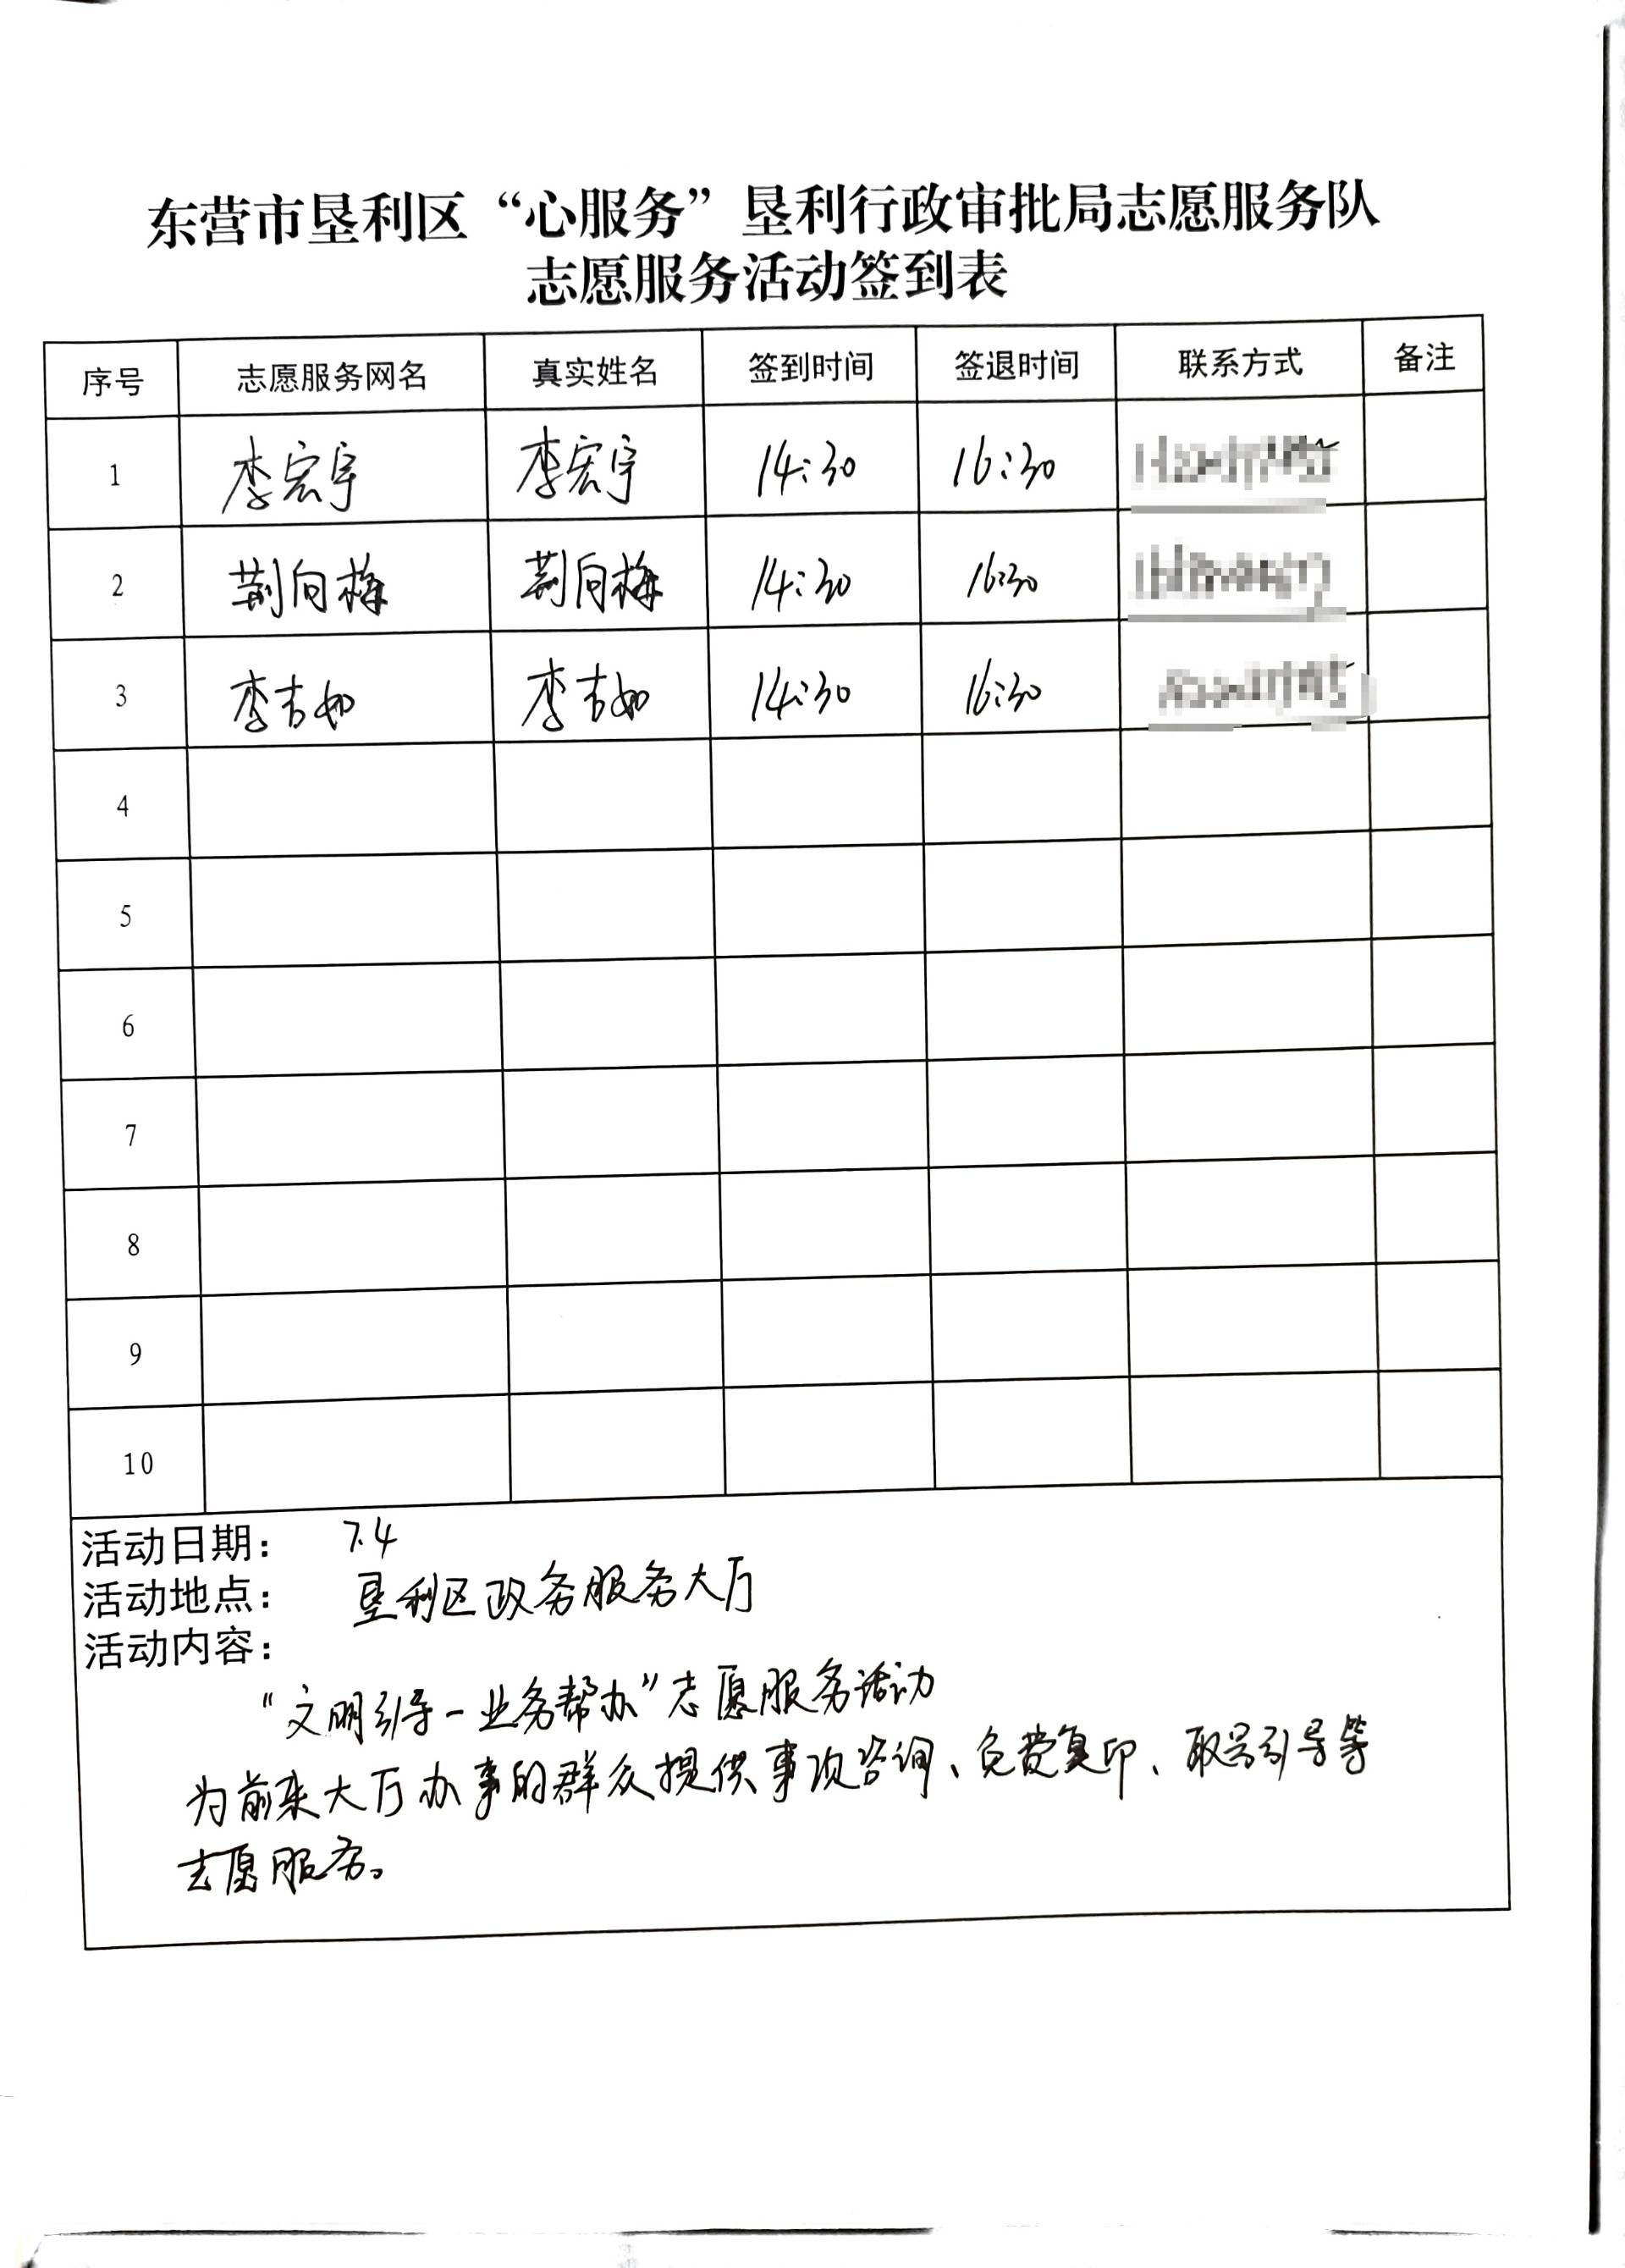 东营市垦利区“心服务”垦利行政审批局志愿服务队
志愿服务活动签到表
序号 志愿服务网名 真实姓名 签到时间 签退时间 联系方式 备注
1 李宏宇 李宏宇 14:30 16:30
2 荆向梅 荆向梅 14:30 16:30
3 李吉如 李吉如 14:30 16:30
4
5
6
7
8
9
10
活动日期: 7.4
活动地点: 垦利区政务服务大厅
活动内容:
“文明引导-业务帮办”志愿服务活动
为前来大厅办事的群众提供事项咨询、免费复印、取号引导等
志愿服务。